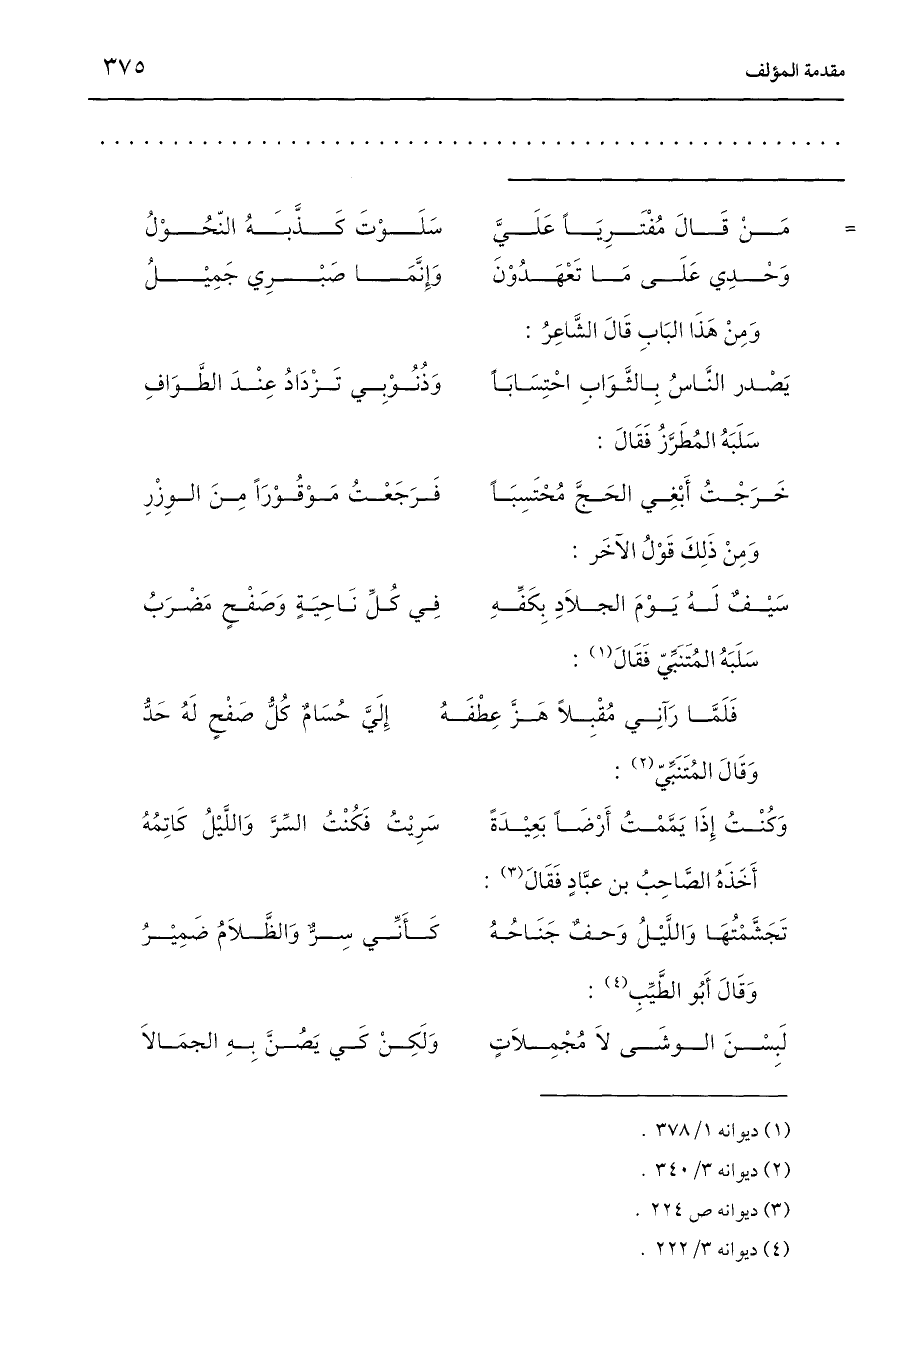 مقدمة المؤلف ٣٧٥
= مَنْ قَالَ مُفْتَرِيَاً عَلَيَّ سَلَوْتَ كَذَّبَهُ النَّحُوْلُ
وَحْدِي عَلَى مَا تَعْهَدُوْنَ وَإِنَّمَا صَبْرِي جَمِيْلُ
وَمِنْ هَذَا البَابِ قَالَ الشَّاعِرُ :
يَصْدر النَّاسُ بِالثَّوَابِ احْتِسَابَاً وَذُنُوْبِي تَزْدَادُ عِنْدَ الطَّوَافِ
سَلَبَهُ المُطَرَّزُ فَقَالَ :
خَرَجْتُ أَبْغِي الحَجَّ مُحْتَسِبَاً فَرَجَعْتُ مَوْقُوْرَاً مِنَ الوِزْرِ
وَمِنْ ذَلِكَ قَوْلُ الآخَر :
سَيْفٌ لَهُ يَوْمَ الجلاَدِ بِكَفِّهِ فِي كُلِّ نَاحِيَةٍ وَصَفْحٍ مَضْرَبُ
سَلَبَهُ المُتَنَبِّيّ فَقَالَ(١) :
فَلَمَّا رَآنِي مُقْبِلاً هَزَّ عِطْفَهُ إِلَيَّ حُسَامٌ كُلُّ صَفْحٍ لَهُ حَدُّ
وَقَالَ المُتَنَبِّيّ(٢) :
وَكُنْتُ إِذَا يَمَّمْتُ أَرْضَاً بَعِيْدَةً سَرِيْتُ فَكُنْتُ السِّرَّ وَاللَّيْلُ كَاتِمُهُ
أَخَذَهُ الصَّاحِبُ بن عبَّادٍ فَقَالَ(٣) :
تَجَشَّمْتُهَا وَاللَّيْلُ وَحفٌ جَنَاحُهُ كَأَنِّي سِرٌّ وَالظَّلاَمُ ضَمِيْرُ
وَقَالَ أَبُو الطَّيِّبِ(٤) :
لَبِسْنَ الوشَى لاَ مُجْمِلاَتٍ وَلَكِنْ كَي يَصُنَّ بِهِ الجمَالاَ
(١) ديوانه ١/ ٣٧٨ .
(٢) ديوانه ٣/ ٣٤٠ .
(٣) ديوانه ص ٢٢٤ .
(٤) ديوانه ٣/ ٢٢٢ .